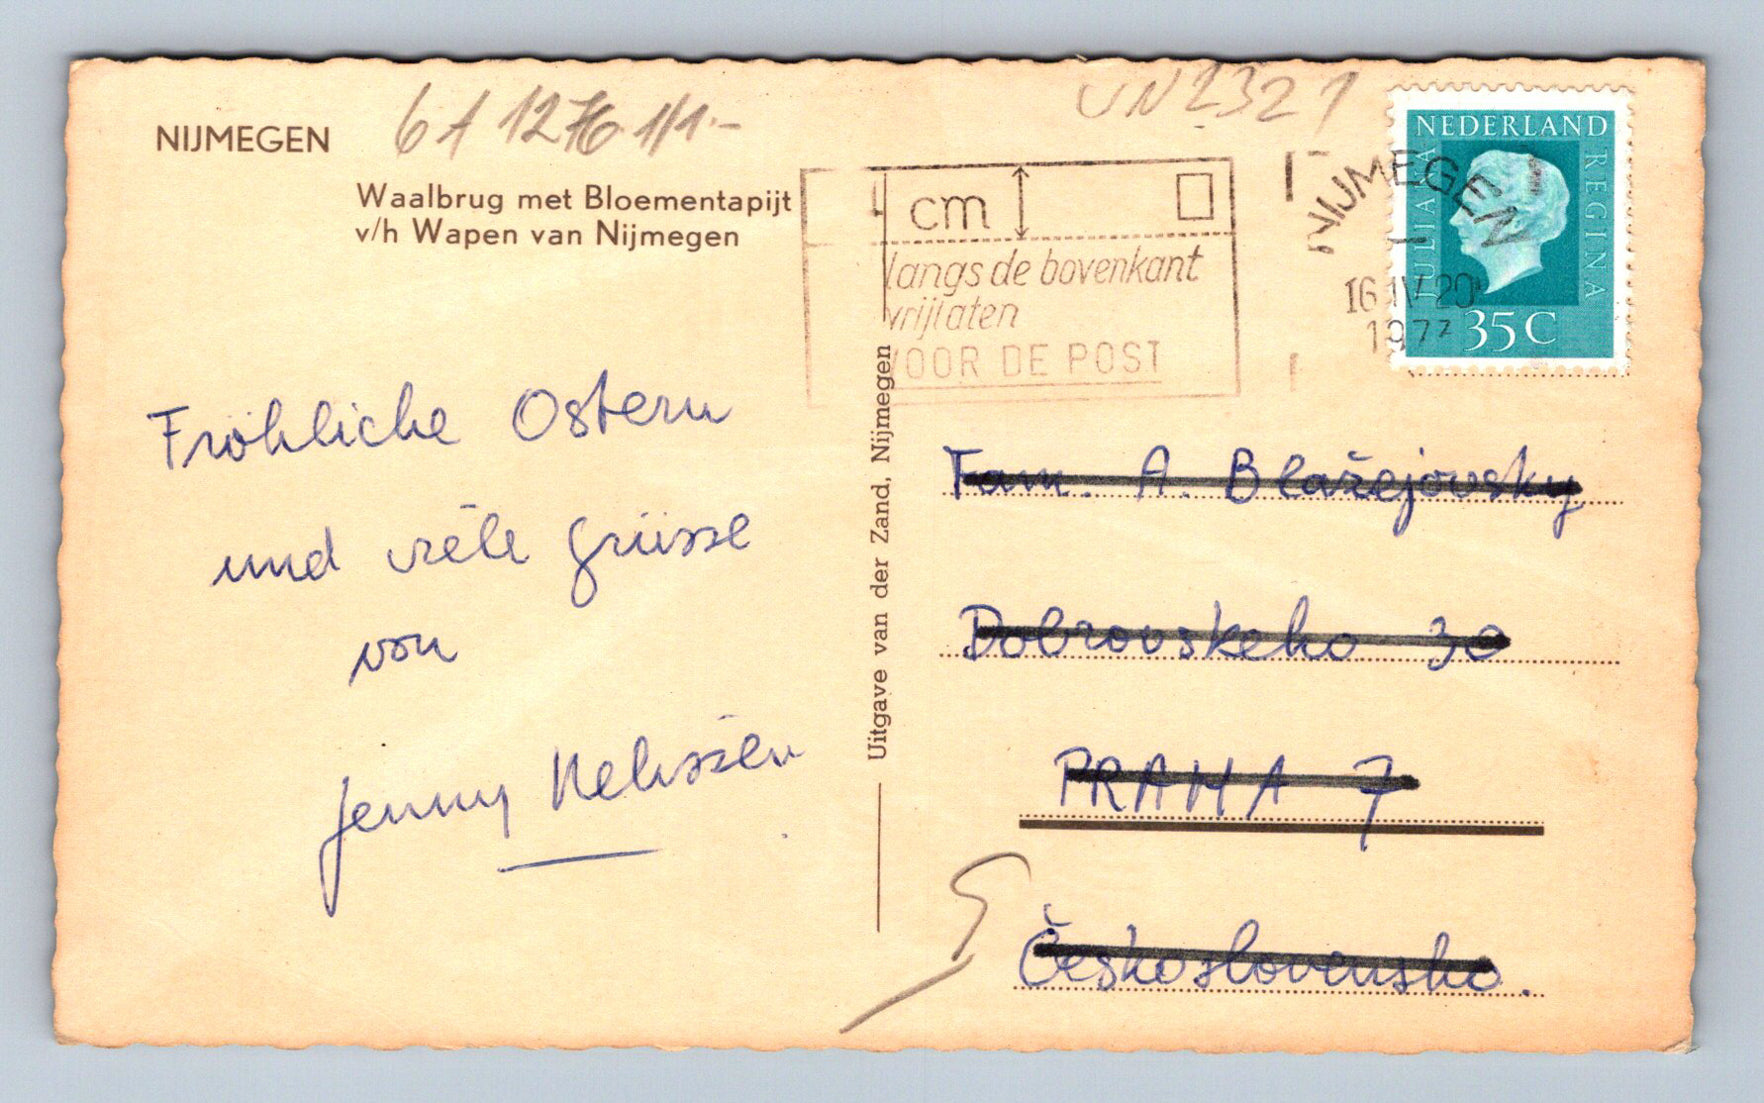 NIJMEGEN
6A 1276 1/1.-
UN 2321
Waalbrug met Bloementapijt
v/h Wapen van Nijmegen
cm
langs de bovenkant
vrijlaten
VOOR DE POST
NIJMEGEN
16 IV 20
1977
NEDERLAND
JULIANA
REGINA
35C
Fröhliche Ostern
und viele Grüsse
von
Jenny Nelissen
Uitgave van der Zand, Nijmegen
Fam. A. Blažejovsky
Dobrovskeho 30
PRAHA 7
Československo.